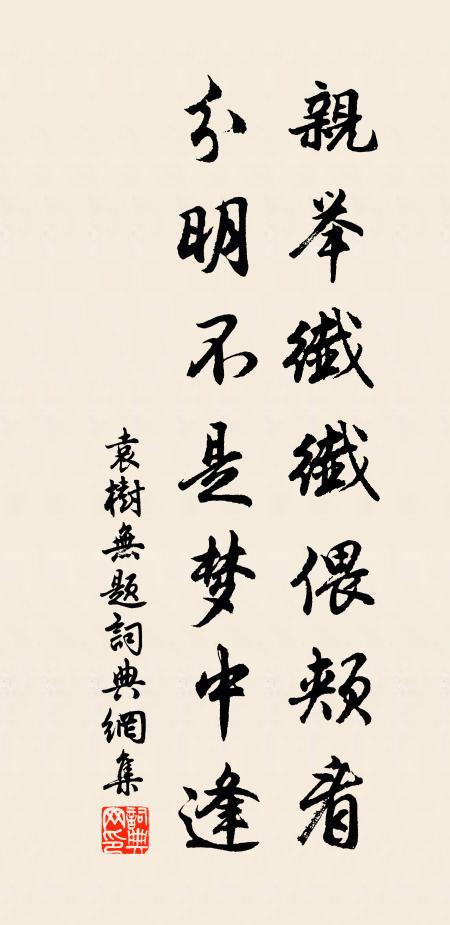 親举纖纖偎頰看
分明不是梦中逢
袁樹無題詞典網集
詞典网印